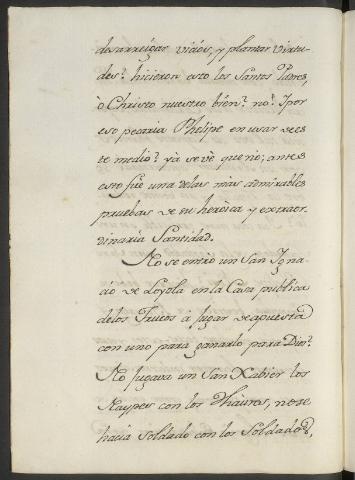 desarreigar vicios, y plantar virtu-
des? hicieron esto los Santos Pdres,
ò Christo nuestro bien? no? Ipor
eso pecaria Phelipe en usar de es
te medio? yà se vè que no; antes
esto fuè una delas màs admirables
pruebas de su heròica y extraor
dinaria Santidad.
No se entrò un San Igna
cio de Loyola en la Casa publica
delos Trucos à jugar de apuesta
con uno para ganarlo para Dios?
No jugava un San Xabier los
Naypes con los Thaures, no se
hacia soldado con los Soldados,